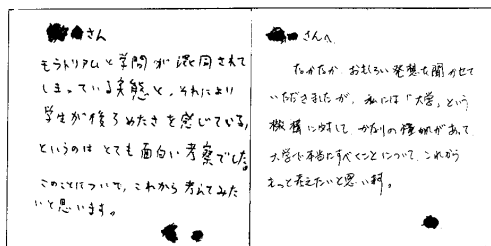 さん
モラトリアムと学問が混同されて
しまっている実態と、それにより
学生が後ろめたさを感じている、
というのはとても面白い考察でした。
このことについて、これから考えてみた
いと思います。
さんへ
なかなか、おもしろい発想を聞かせて
いただきましたが、私には「大学」という
機構に対して、かなりの があって、
大学で本当にすべきことについて、これから
もっと考えたいと思います。